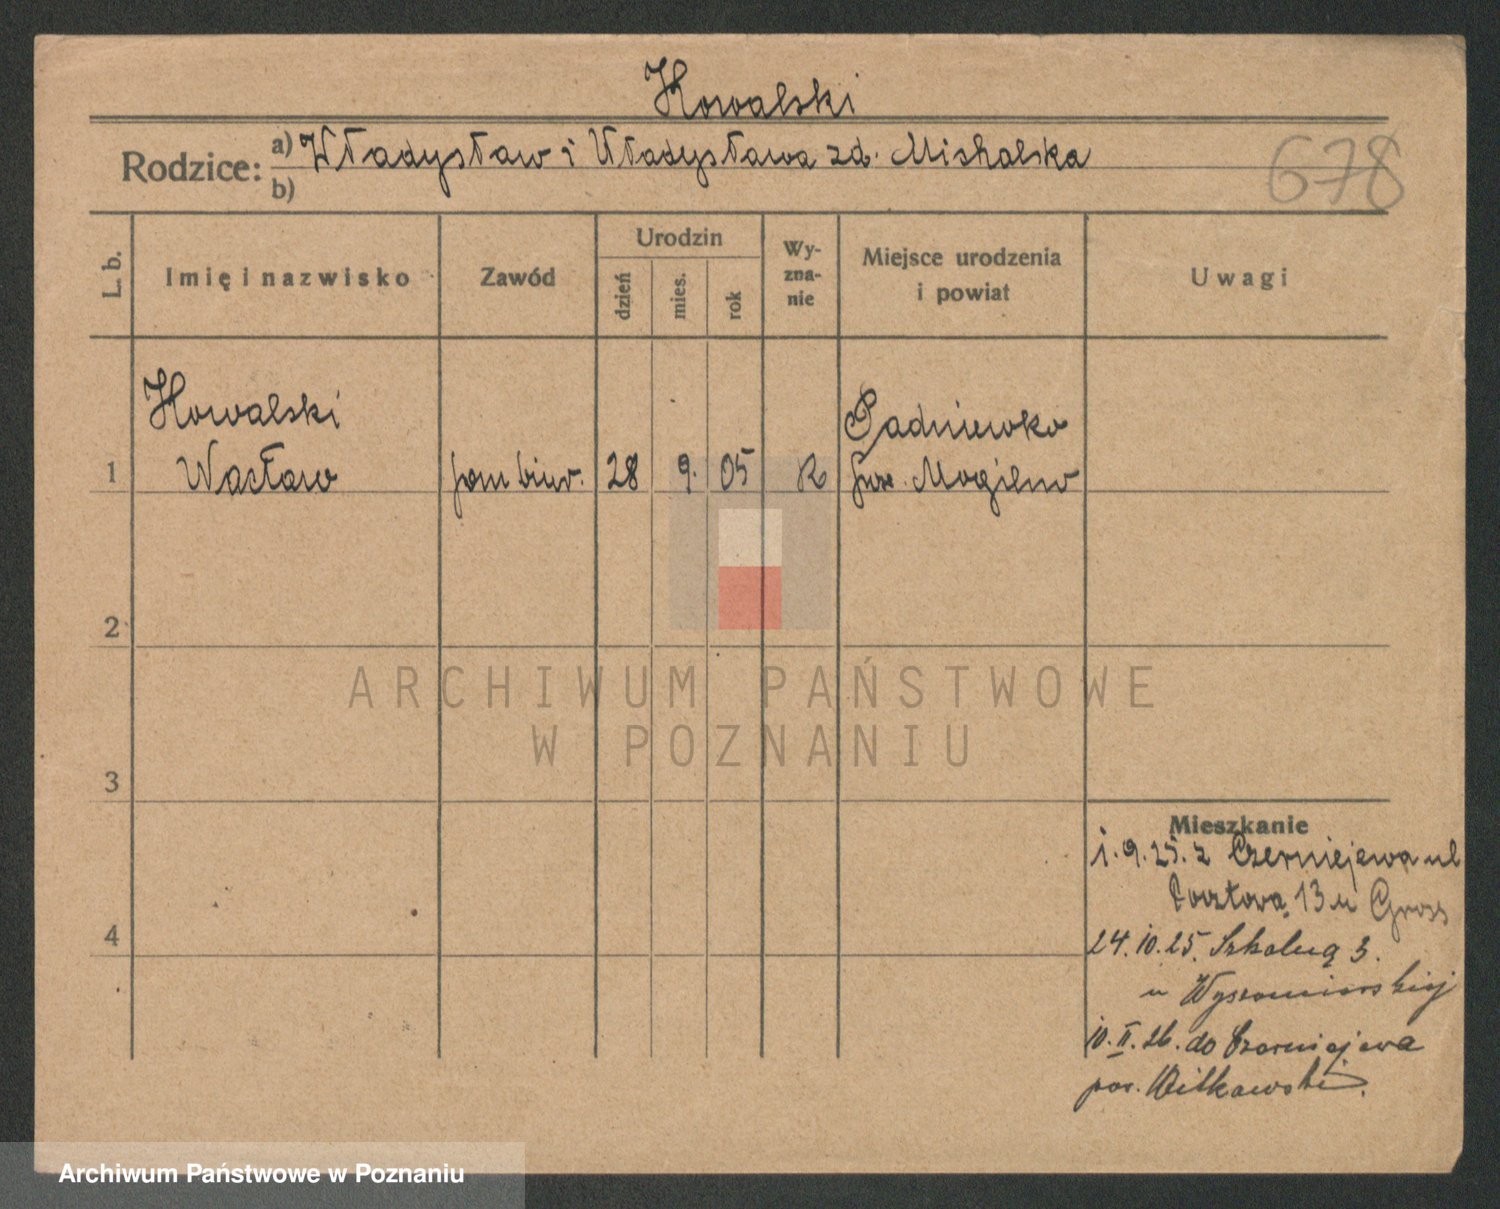 Kowalski
Rodzice: a) Władysław i Władysława zd. Michalska
b)
678
L. b.
Imię i nazwisko
Zawód
Urodzin
dzień
mies.
rok
Wy-
zna-
nie
Miejsce urodzenia
i powiat
Uwagi
Kowalski
Padniewko
1 Wacław pom biur. 28 9. 05 R Mogilno
2
3
4
ARCHIWUM PAŃSTWOWE
W POZNANIU
Mieszkanie
1.9.25. z Czerniejewa ul
Pocztowa 13 u Gross
24.10.25. Szkolna 3.
u Wyszomirskiej
10.II.26. do Czerniejewa
pow. Witkowski.
Archiwum Państwowe w Poznaniu